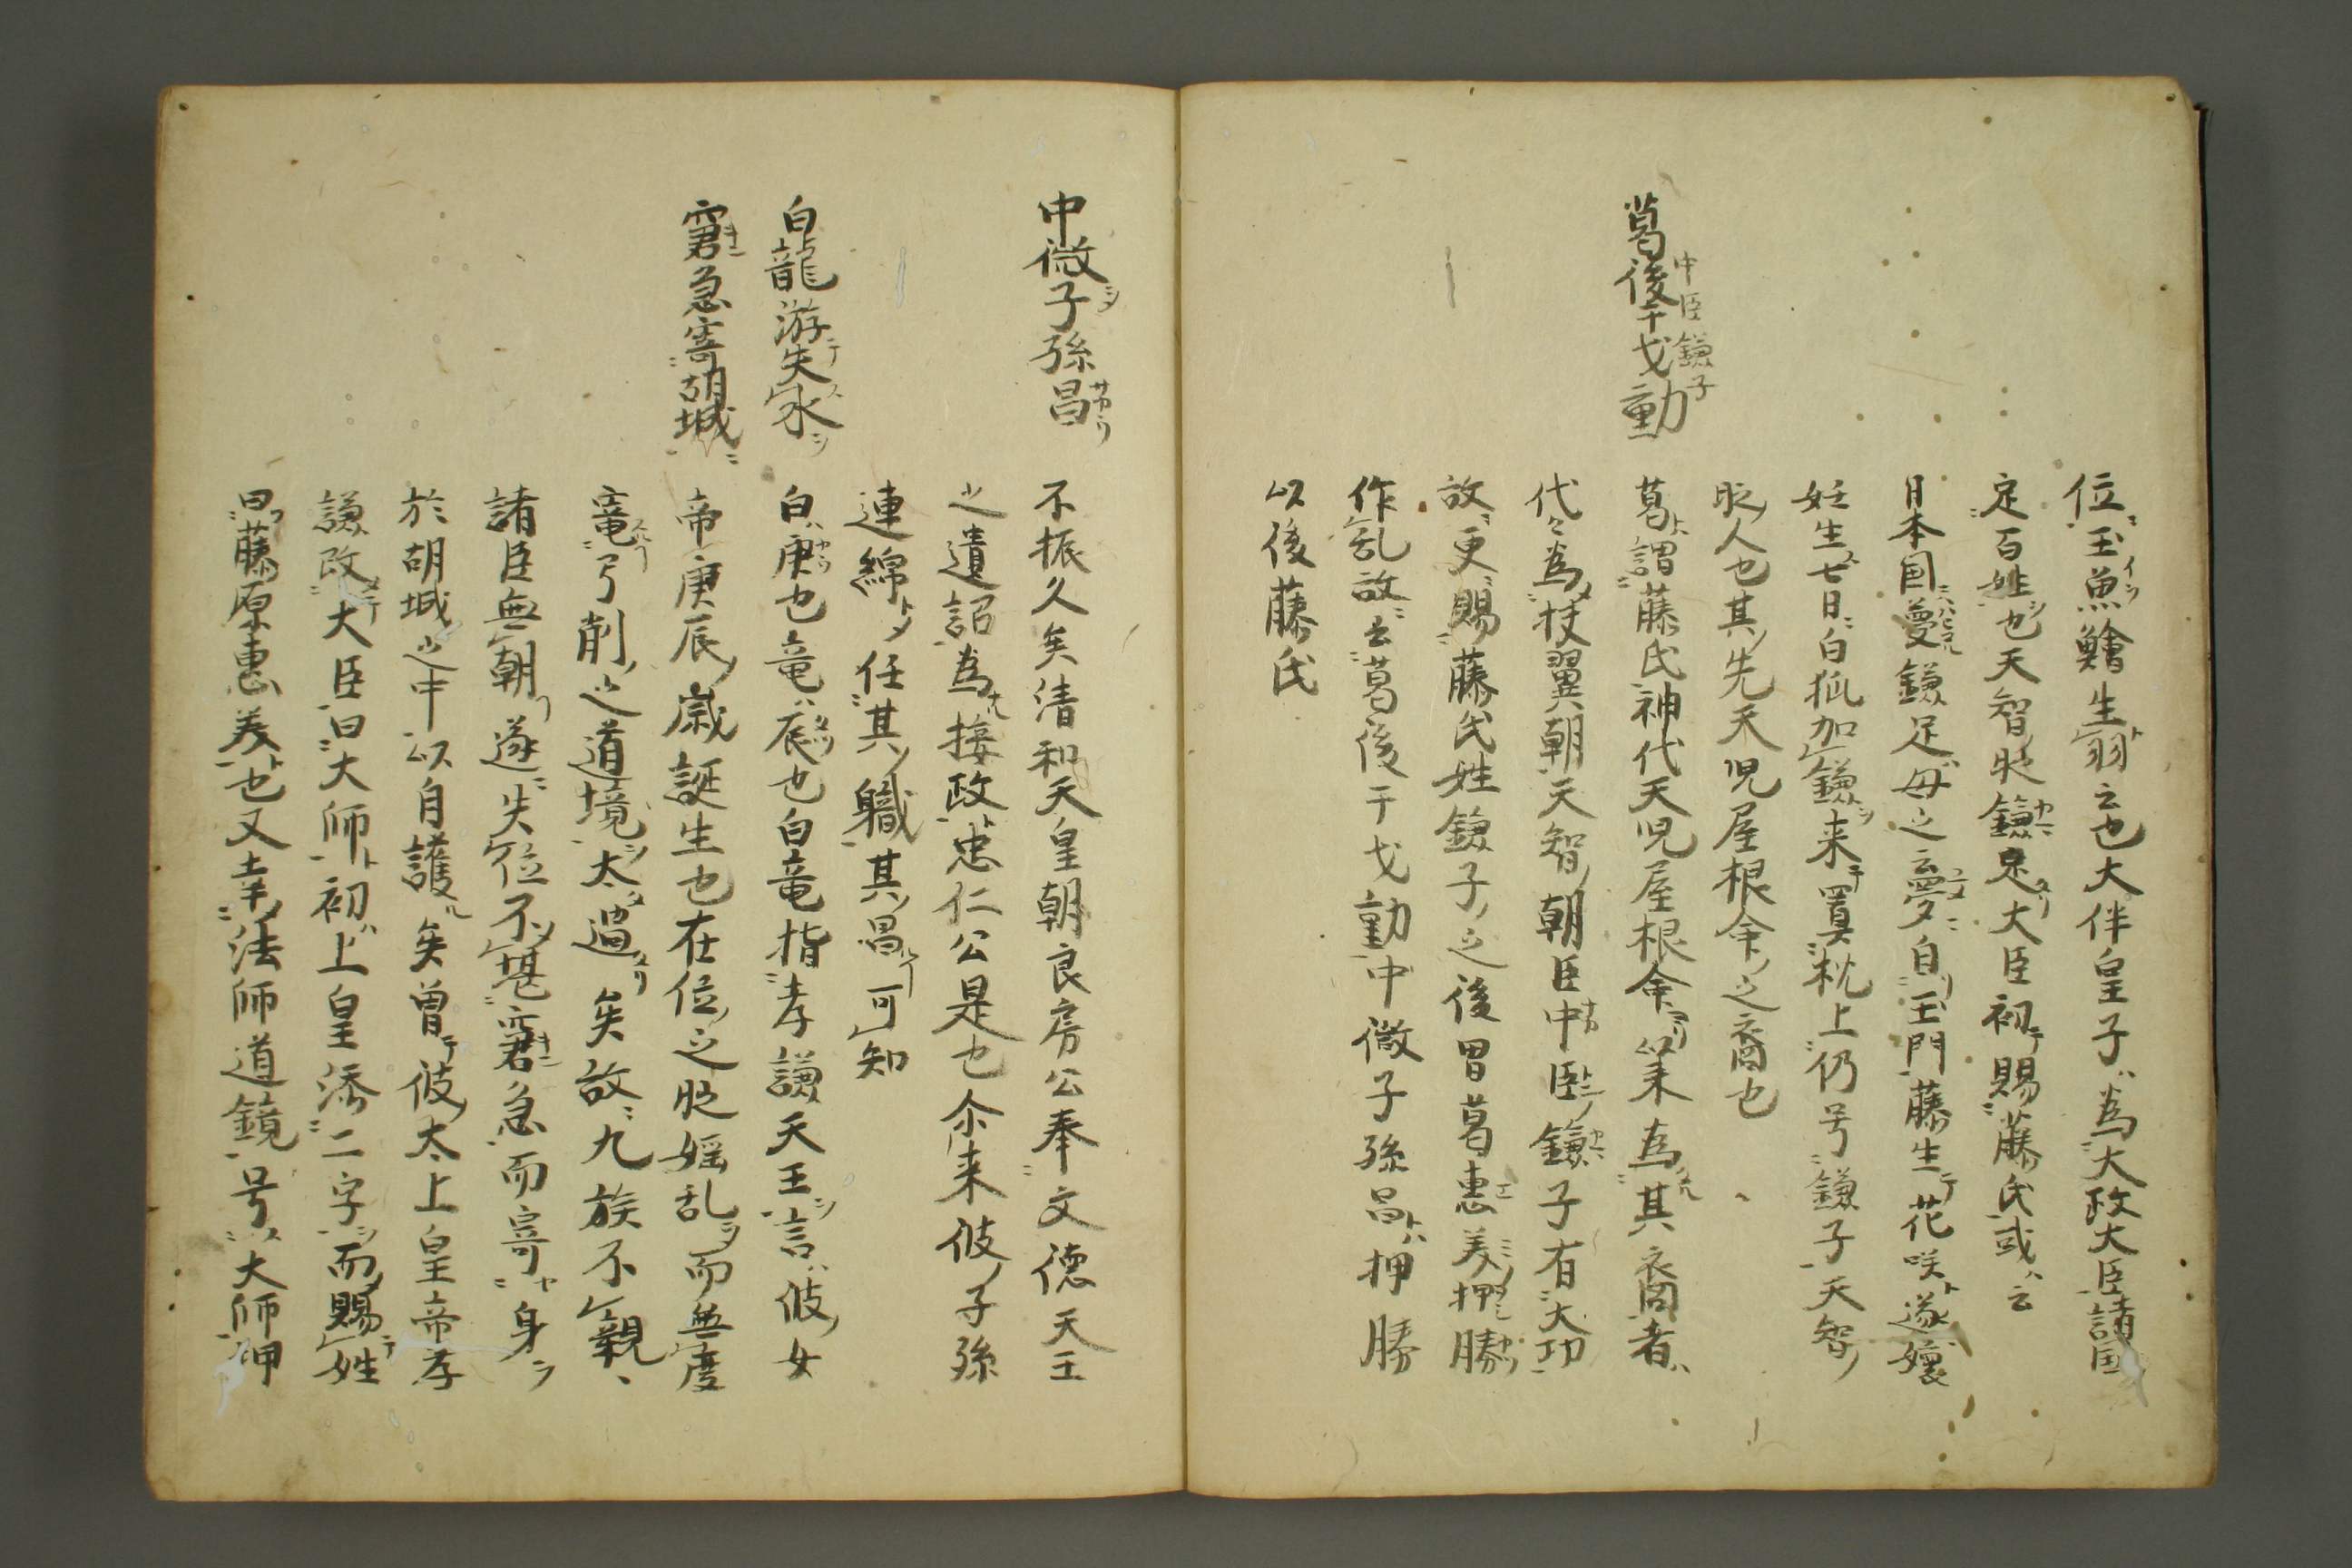 位玉魚鱠生羽云也大伴皇子為大政大臣諸国
定百姓也天智時鎌足大臣初賜藤氏或云
日本国夢鎌足母之云夢自玉門藤生花咲遂懐
妊生七日白狐加鎌来置枕上仍号鎌子天智
時人也其先天児屋根命之裔也
葛後干戈動
中臣鎌子
葛謂藤氏神代天児屋根命以来為其裔者
代々為扶翼朝天智朝臣中臣鎌子有大功
故更賜藤氏姓鎌子之後胃葛恵美押勝
作乱故云葛後干戈動中微子孫昌押勝
以後藤氏
中微子孫昌
不振久矣清和天皇朝良房公奉文徳天王
之遺詔為接政忠仁公是也尒来彼子孫
連綿任其職其昌可知
白龍游失水
白庚也竜辰也白竜指孝謙天王言彼女
窘急寄胡城
帝庚辰歳誕生也在位之時婬乱而無度
竜弓削之道境太過矣故九族不親
諸臣無朝遂失位不堪窘急而寄身
於胡城之中以自護矣曽彼太上皇帝孝
謙改大臣曰大師初上皇添二字而賜姓
曰藤原恵美也又幸法師道鏡号大師押